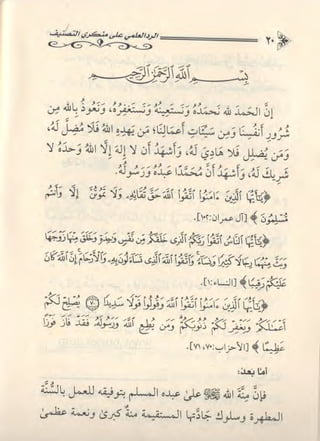 ٢٠ الرد العلمي على منكري التصنيف
بسم الله الرحمن الرحيم
إنَّ الحَمدَ لله نَحمَدُهُ وَنَستَعِينُهُ وَنَستَغفِرُهُ، وَنَعُوذُ بِالله مِن
شُرُورِ أَنفُسِنَا وَمِن سَيِّئَاتِ أَعمَالِنَا؛ مَن يَهدِهِ اللهُ فَلَا مُضِلَّ لَهُ،
وَمَن يُضلِل فَلَا هَادِيَ لَهُ، وَأَشهَدُ أَن لَا إِلَهَ إِلَّا اللهُ وَحدَهُ لَا
شَرِيكَ لَهُ، وَأَشهَدُ أَنَّ مُحَمَّدًا عَبدُهُ وَرَسُولُهُ.
﴿يَٰٓأَيُّهَا ٱلَّذِينَ ءَامَنُوا۟ ٱتَّقُوا۟ ٱللَّهَ حَقَّ تُقَاتِهِۦ وَلَا تَمُوتُنَّ إِلَّا وَأَنتُم
مُّسْلِمُونَ﴾ [آل عمران:١٠٢].
﴿يَٰٓأَيُّهَا ٱلنَّاسُ ٱتَّقُوا۟ رَبَّكُمُ ٱلَّذِى خَلَقَكُم مِّن نَّفْسٍ وَٰحِدَةٍ وَخَلَقَ مِنْهَا زَوْجَهَا
وَبَثَّ مِنْهُمَا رِجَالًا كَثِيرًا وَنِسَآءً وَٱتَّقُوا۟ ٱللَّهَ ٱلَّذِى تَسَآءَلُونَ بِهِۦ وَٱلْأَرْحَامَ إِنَّ ٱللَّهَ كَانَ
عَلَيْكُمْ رَقِيبًا﴾ [النساء:١].
﴿يَٰٓأَيُّهَا ٱلَّذِينَ ءَامَنُوا۟ ٱتَّقُوا۟ ٱللَّهَ وَقُولُوا۟ قَوْلًا سَدِيدًا ۝٧٠ يُصْلِحْ لَكُمْ
أَعْمَٰلَكُمْ وَيَغْفِرْ لَكُمْ ذُنُوبَكُمْ وَمَن يُطِعِ ٱللَّهَ وَرَسُولَهُۥ فَقَدْ فَازَ فَوْزًا
عَظِيمًا﴾ [الأحزاب:٧٠، ٧١].
أمَّا بعدُ:
فإنَّ مِنَّةَ الله ﷻ علىٰ عبده المسلم بتوفيقه للعمل بالسُّنَّة
المطهرة وسلوك جادَّتها المستقيمة منةٌ كبرىٰ ونعمة عظمىٰ